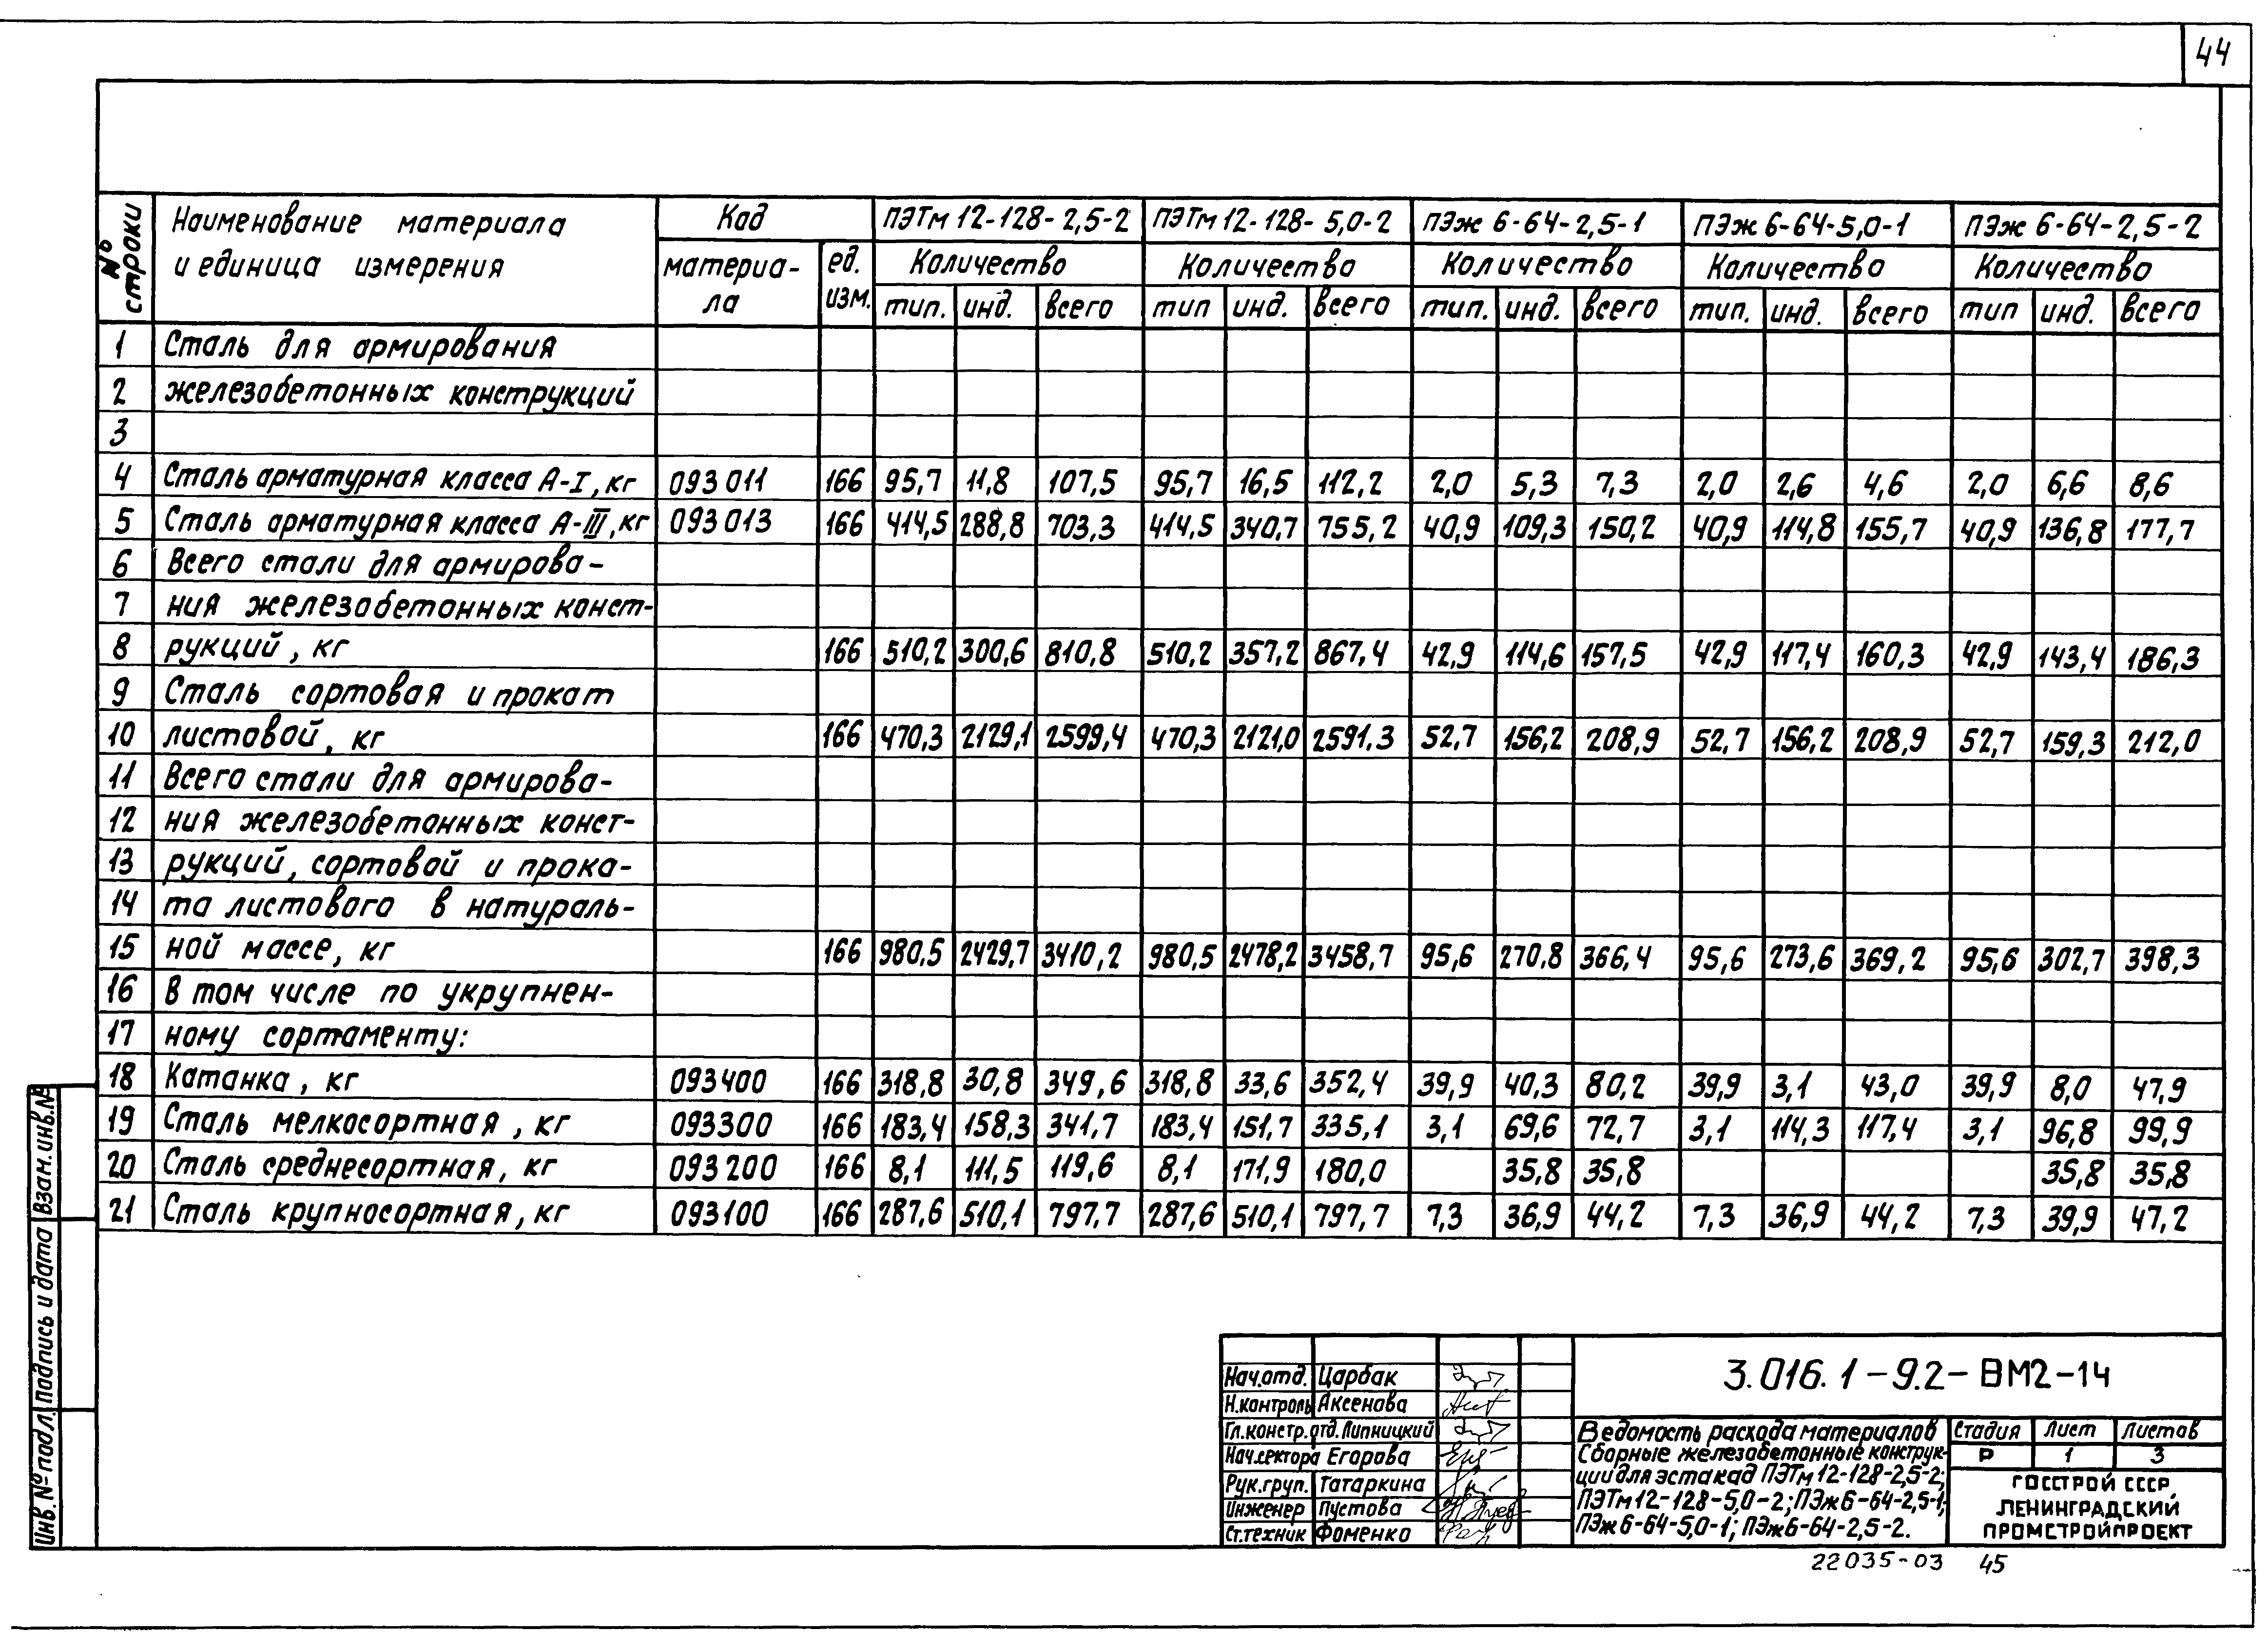 44
№ строки | Наименование материала и единица измерения | Код | ПЭТм 12-128-2,5-2 | ПЭТм 12-128-5,0-2 | ПЭж 6-64-2,5-1 | ПЭж 6-64-5,0-1 | ПЭж 6-64-2,5-2
материа-ла | ед. изм. | Количество | Количество | Количество | Количество | Количество
тип. | инд. | всего | тип | инд. | всего | тип. | инд. | всего | тип. | инд. | всего | тип | инд. | всего
1 Сталь для армирования
2 железобетонных конструкций
3
4 Сталь арматурная класса А-I, кг 093011 166 95,7 11,8 107,5 95,7 16,5 112,2 2,0 5,3 7,3 2,0 2,6 4,6 2,0 6,6 8,6
5 Сталь арматурная класса А-III, кг 093013 166 414,5 288,8 703,3 414,5 340,7 755,2 40,9 109,3 150,2 40,9 114,8 155,7 40,9 136,8 177,7
6 Всего стали для армирова-
7 ния железобетонных конст-
8 рукций, кг 166 510,2 300,6 810,8 510,2 357,2 867,4 42,9 114,6 157,5 42,9 117,4 160,3 42,9 143,4 186,3
9 Сталь сортовая и прокат
10 листовой, кг 166 470,3 2129,1 2599,4 470,3 2121,0 2591,3 52,7 156,2 208,9 52,7 156,2 208,9 52,7 159,3 212,0
11 Всего стали для армирова-
12 ния железобетонных конст-
13 рукций, сортовой и прока-
14 та листового в натураль-
15 ной массе, кг 166 980,5 2429,7 3410,2 980,5 2478,2 3458,7 95,6 270,8 366,4 95,6 273,6 369,2 95,6 302,7 398,3
16 В том числе по укрупнен-
17 ному сортаменту:
18 Катанка, кг 093400 166 318,8 30,8 349,6 318,8 33,6 352,4 39,9 40,3 80,2 39,9 3,1 43,0 39,9 8,0 47,9
19 Сталь мелкосортная, кг 093300 166 183,4 158,3 341,7 183,4 151,7 335,1 3,1 69,6 72,7 3,1 114,3 117,4 3,1 96,8 99,9
20 Сталь среднесортная, кг 093200 166 8,1 111,5 119,6 8,1 171,9 180,0 35,8 35,8 35,8 35,8
21 Сталь крупносортная, кг 093100 166 287,6 510,1 797,7 287,6 510,1 797,7 7,3 36,9 44,2 7,3 36,9 44,2 7,3 39,9 47,2
Инв. № подл. Подпись и дата Взам. инв. №
Нач.отд. Царбак
Н.контроль Аксенова
Гл.констр.отд. Липницкий
Нач.сектора Егорова
Рук.груп. Татаркина
Инженер Пустова
Ст.техник Фоменко
3.016.1-9.2-ВМ2-14
Ведомость расхода материалов
Сборные железобетонные конструк-
ции для эстакад ПЭТм 12-128-2,5-2;
ПЭТм12-128-5,0-2; ПЭж6-64-2,5-1;
ПЭж6-64-5,0-1; ПЭж6-64-2,5-2.
Стадия Лист Листов
Р 1 3
ГОССТРОЙ СССР
ЛЕНИНГРАДСКИЙ
ПРОМСТРОЙПРОЕКТ
22035-03 45